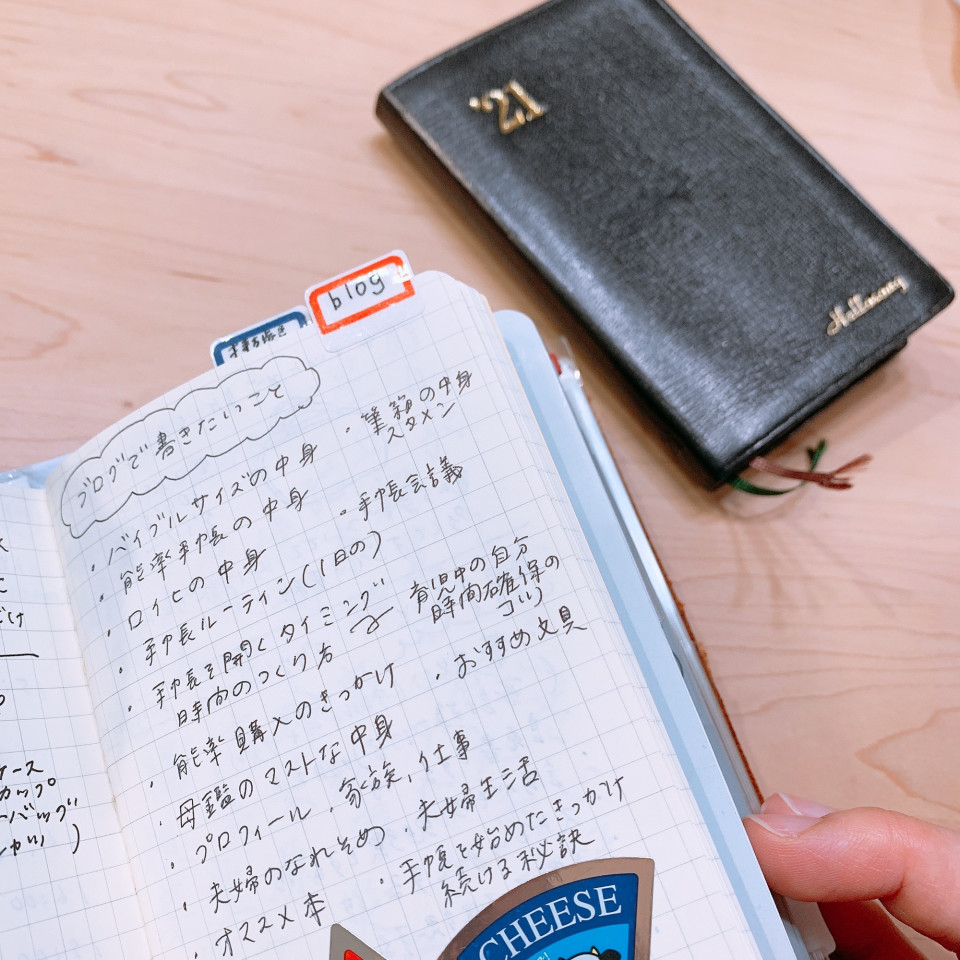 '21
blog
ブログで書きたいこと
・バイブルサイズの中身
・筆箱の中身
スタメン
・能率手帳の中身
・手帳会議
・ロイヒの中身
・手帳ルーティン(1日の)
・手帳を開くタイミング
時間のつくり方
育児中の自分
時間確保の
コツ
・能率購入のきっかけ
・おすすめ文具
・母鑑のマストな中身
・プロフィール・家族,仕事
・夫婦のなれそめ・夫婦生活
・オススメ本
・手帳を始めたきっかけ
続ける秘訣
ケース
カップ。
CHEESE